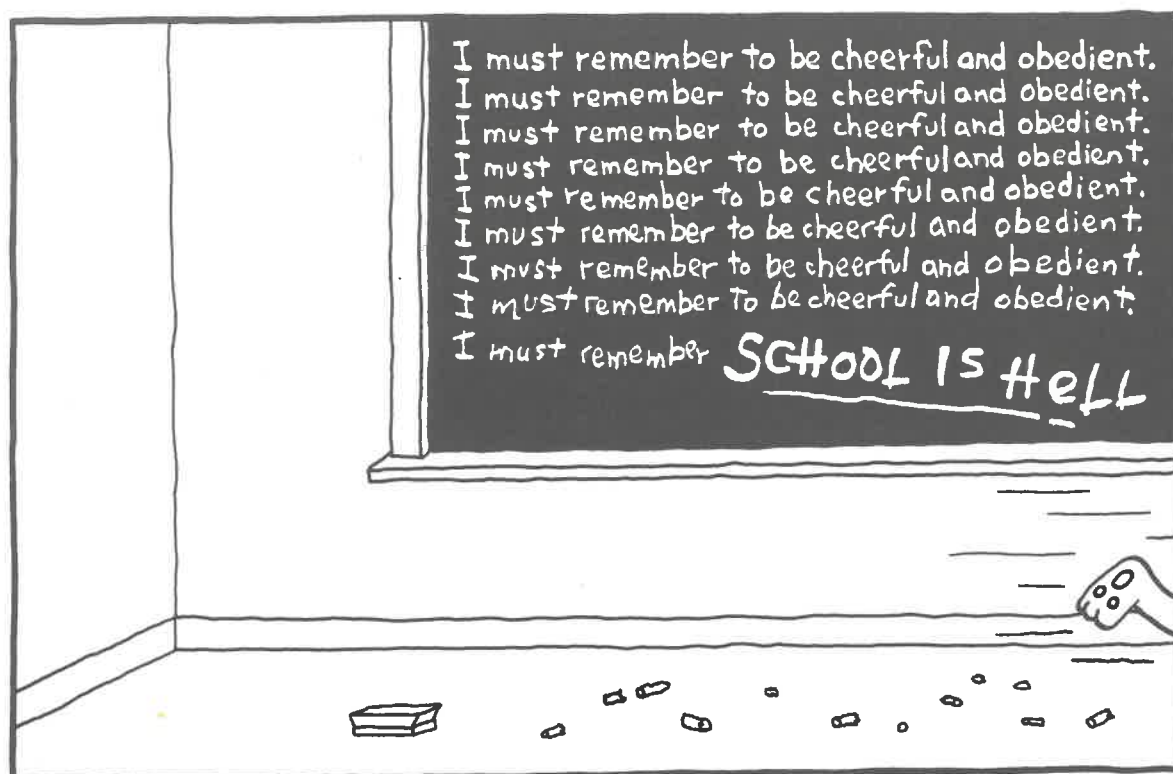 I must remember to be cheerful and obedient.
I must remember to be cheerful and obedient.
I must remember to be cheerful and obedient.
I must remember to be cheerful and obedient.
I must remember to be cheerful and obedient.
I must remember to be cheerful and obedient.
I must remember to be cheerful and obedient.
I must remember to be cheerful and obedient.
I must remember SCHOOL IS HeLL